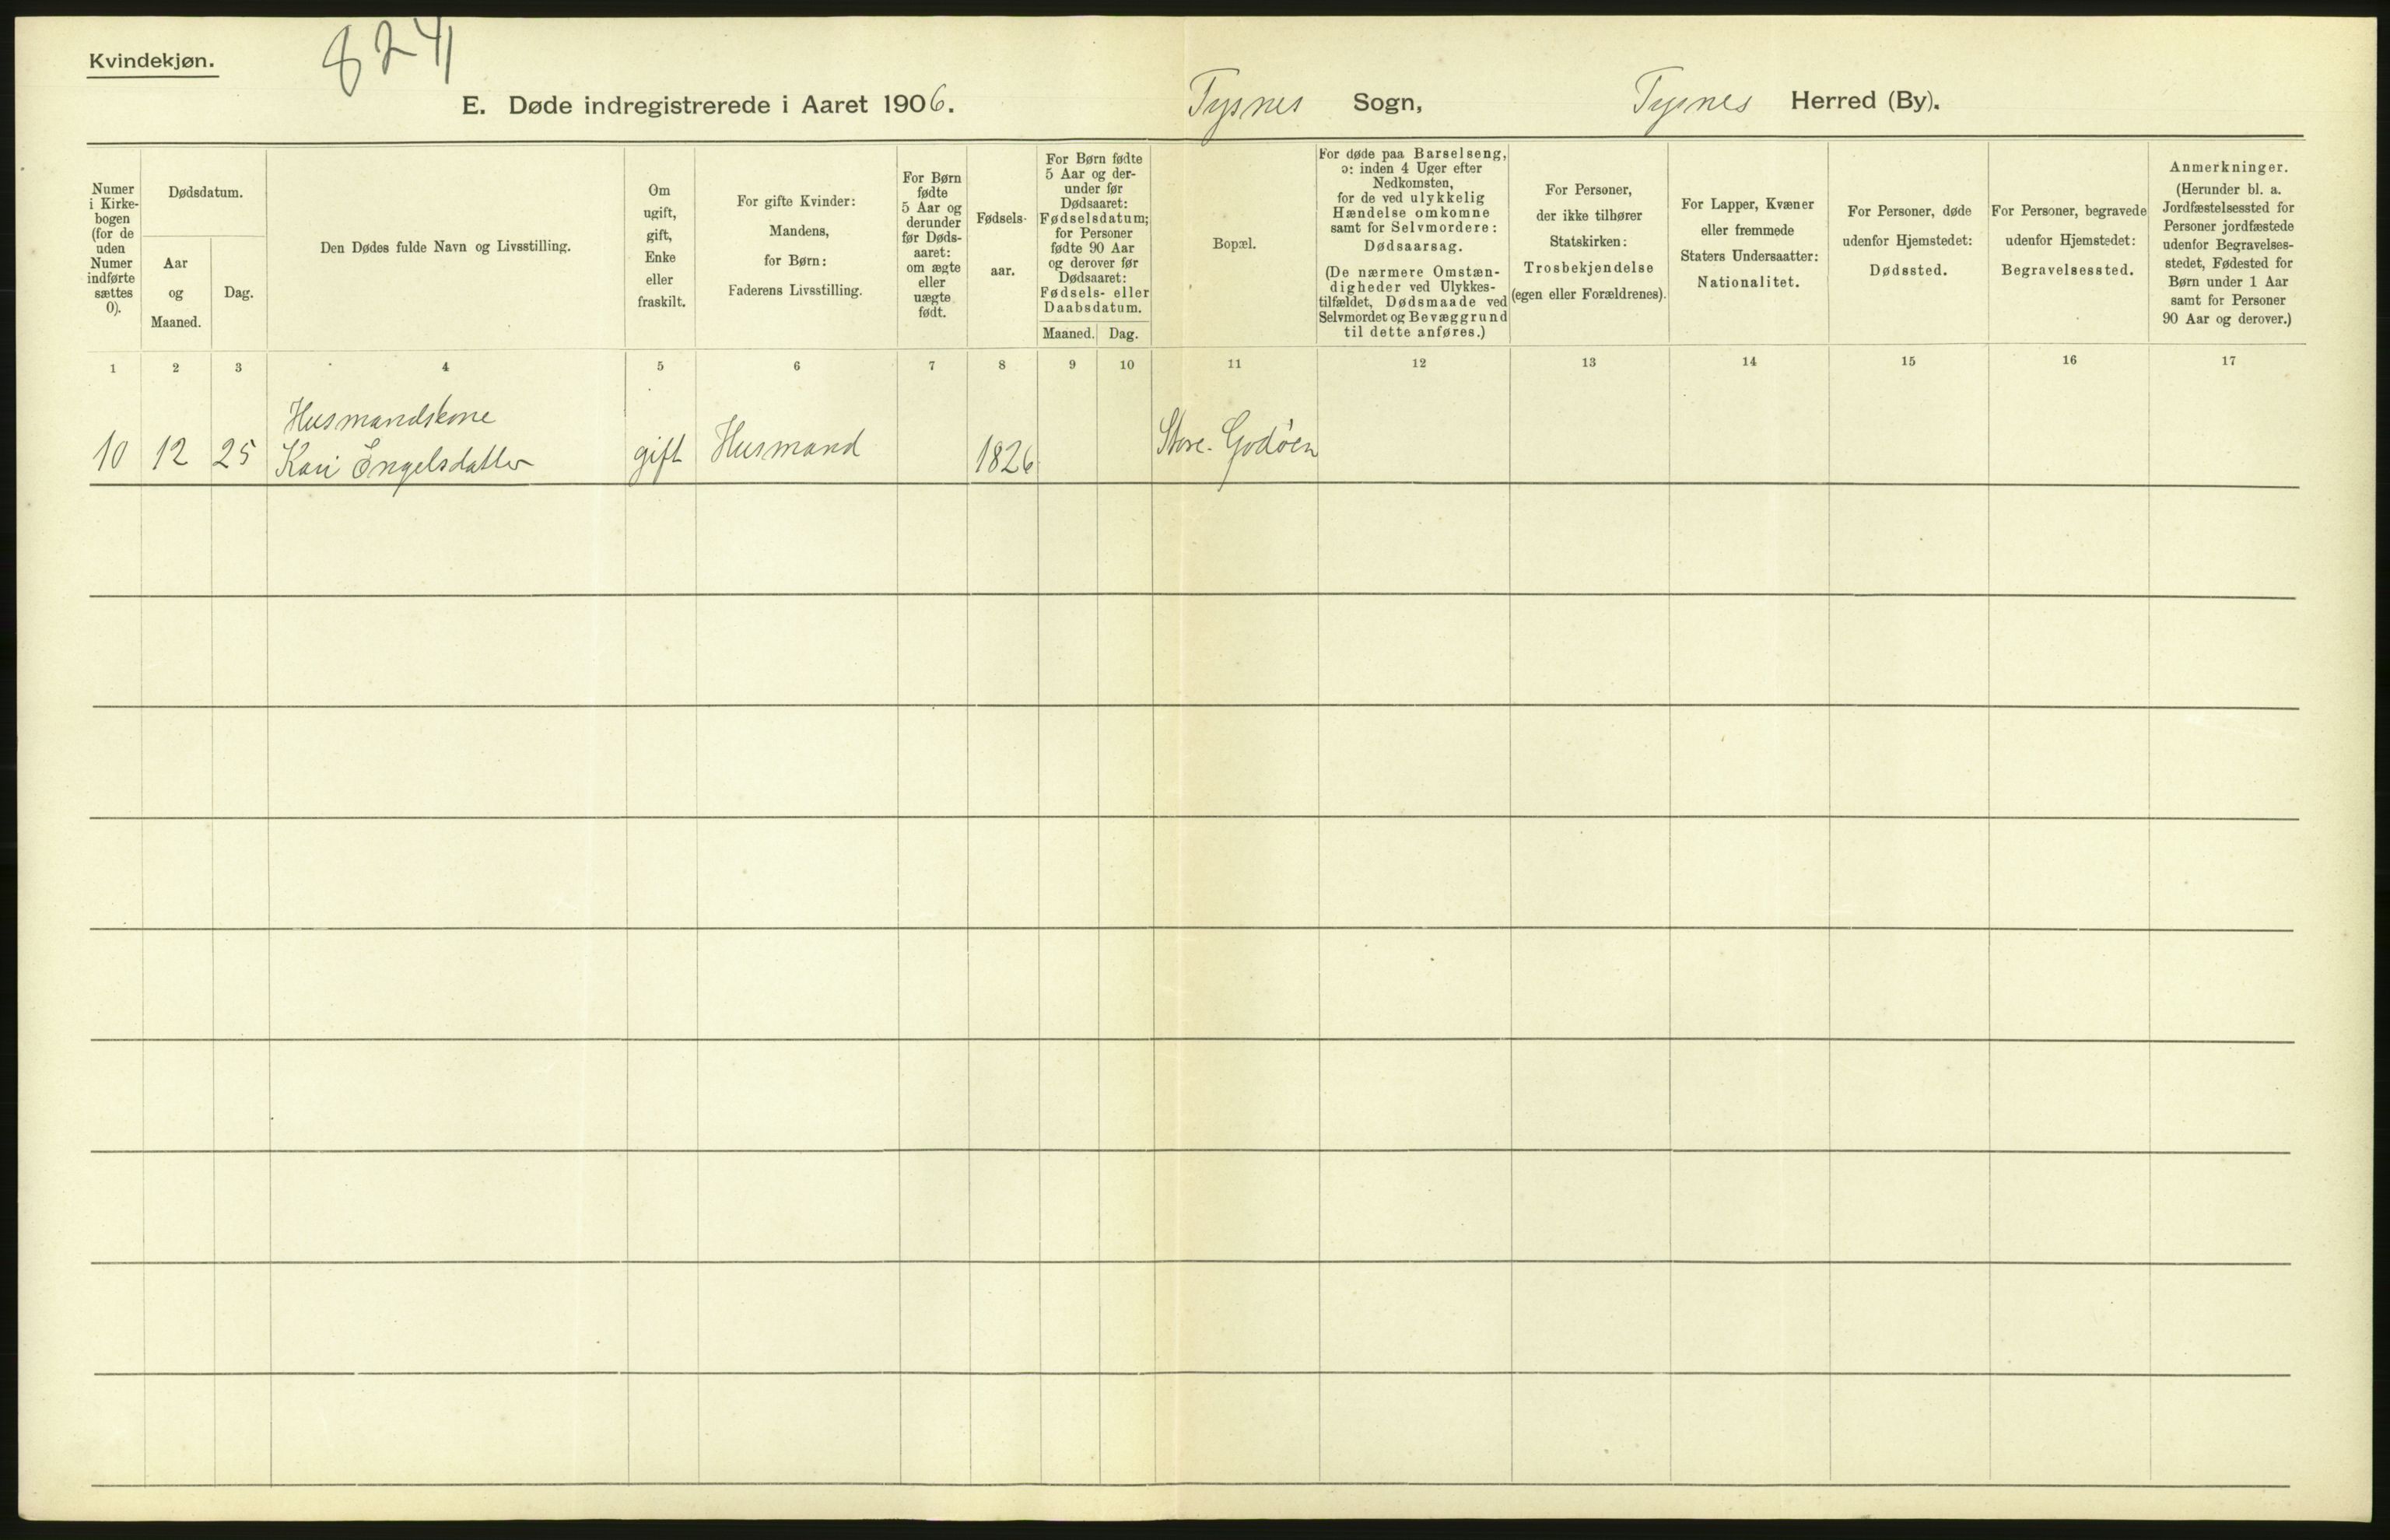 Kvindekjøn.
8241
E. Døde indregistrerede i Aaret 1906.
Tysnes Sogn,
Tysnes Herred (By).
Numer
i Kirke-
bogen
(for de
uden
Numer
indførte
sættes
0).
Dødsdatum.
Aar
og
Maaned.
Dag.
Den Dødes fulde Navn og Livsstilling.
Om
ugift,
gift,
Enke
eller
fraskilt.
For gifte Kvinder:
Mandens,
for Børn:
Faderens Livsstilling.
For Børn
fødte
5 Aar og
derunder
før Døds-
aaret:
om ægte
eller
uægte
født.
Fødsels-
aar.
For Børn fødte
5 Aar og der-
under før
Dødsaaret:
Fødselsdatum;
for Personer
fødte 90 Aar
og derover før
Dødsaaret:
Fødsels- eller
Daabsdatum.
Maaned.
Dag.
Bopæl.
For døde paa Barselseng,
ɔ: inden 4 Uger efter
Nedkomsten,
for de ved ulykkelig
Hændelse omkomne
samt for Selvmordere:
Dødsaarsag.
(De nærmere Omstæn-
digheder ved Ulykkes-
tilfældet, Dødsmaade ved
Selvmordet og Bevæggrund
til dette anføres.)
For Personer,
der ikke tilhører
Statskirken:
Trosbekjendelse
(egen eller Forældrenes).
For Lapper, Kvæner
eller fremmede
Staters Undersaatter:
Nationalitet.
For Personer, døde
udenfor Hjemstedet:
Dødssted.
For Personer, begravede
udenfor Hjemstedet:
Begravelsessted.
Anmerkninger.
(Herunder bl. a.
Jordfæstelsessted for
Personer jordfæstede
udenfor Begravelses-
stedet, Fødested for
Børn under 1 Aar
samt for Personer
90 Aar og derover.)
1 2 3 4 5 6 7 8 9 10 11 12 13 14 15 16 17
Husmandskone
10 12 25 Kari Engelsdatter gift Husmand 1826 Store-Godøen